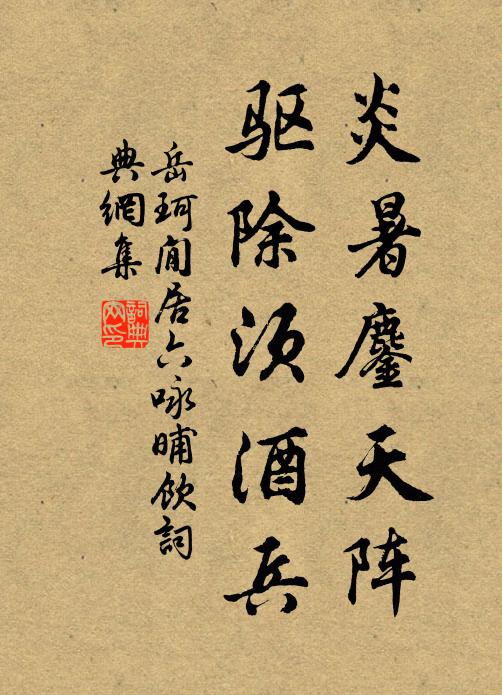 炎暑鏖天阵
驱除须酒兵
岳珂闲居六咏晡饮詞
典網集
詞典
网印